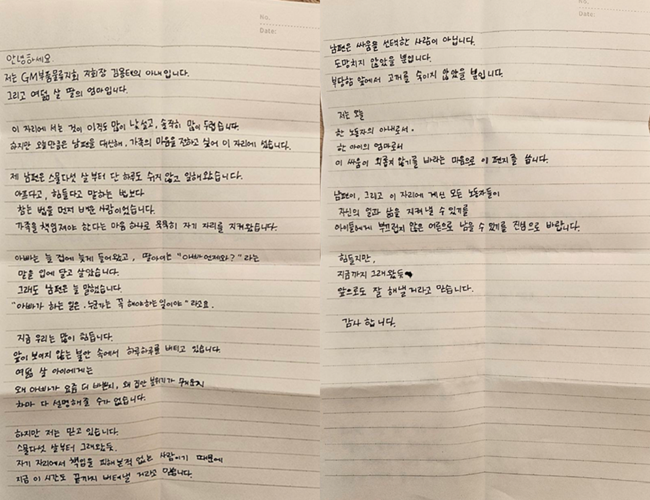 No.
Date:
안녕하세요.
저는 GM부품물류지회 지회장 김용태의 아내입니다.
그리고 여덟 살 딸의 엄마입니다.
이 자리에 서는 것이 아직도 많이 낯설고, 솔직히 많이 두렵습니다.
하지만 오늘만큼은 남편을 대신해, 가족의 마음을 전하고 싶어 이 자리에 섰습니다.
제 남편은 스물다섯 살 부터 단 하루도 쉬지 않고 일해왔습니다.
아프다고, 힘들다고 말하는 법보다
참는 법을 먼저 배운 사람이었습니다.
가족을 책임져야 한다는 마음 하나로 묵묵히 자기 자리를 지켜왔습니다.
아빠는 늘 집에 늦게 들어왔고, 딸아이는 "아빠 언제와?" 라는
말을 입에 달고 살았습니다.
그래도 남편은 늘 말했습니다.
"아빠가 하는 일은 누군가는 꼭 해야하는 일이야" 라고요.
지금 우리는 많이 힘듭니다.
앞이 보이지 않는 불안 속에서 하루하루를 버티고 있습니다.
여덟 살 아이에게는
왜 아빠가 요즘 더 바쁜지, 왜 집안 분위기가 무거운지
차마 다 설명해줄 수가 없습니다.
하지만 저는 믿고 있습니다.
스물다섯 살부터 그래왔듯.
자기 자리에서 책임을 피해본적 없는 사람이기 때문에
지금 이 시간도 끝까지 버텨낼 거라고 믿습니다.
No.
Date:
남편은 싸움을 선택한 사람이 아닙니다.
도망치지 않았을 뿐입니다.
부당함 앞에서 고개를 숙이지 않았을 뿐입니다.
저는 오늘
한 노동자의 아내로서.
한 아이의 엄마로서
이 싸움이 외롭지 않기를 바라는 마음으로 이 편지를 씁니다.
남편이, 그리고 이 자리에 계신 모든 노동자들이
자신의 일과 삶을 지켜 낼 수 있기를
아이들에게 부끄럽지 않은 어른으로 남을 수 있기를 진심으로 바랍니다.
힘들지만,
지금까지 그래왔듯
앞으로도 잘 해낼 거라고 믿습니다.
감사 합니다.